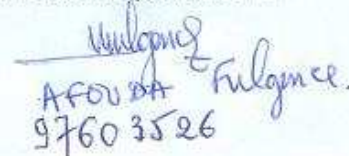 AFOUDA Fulgence.
97603526